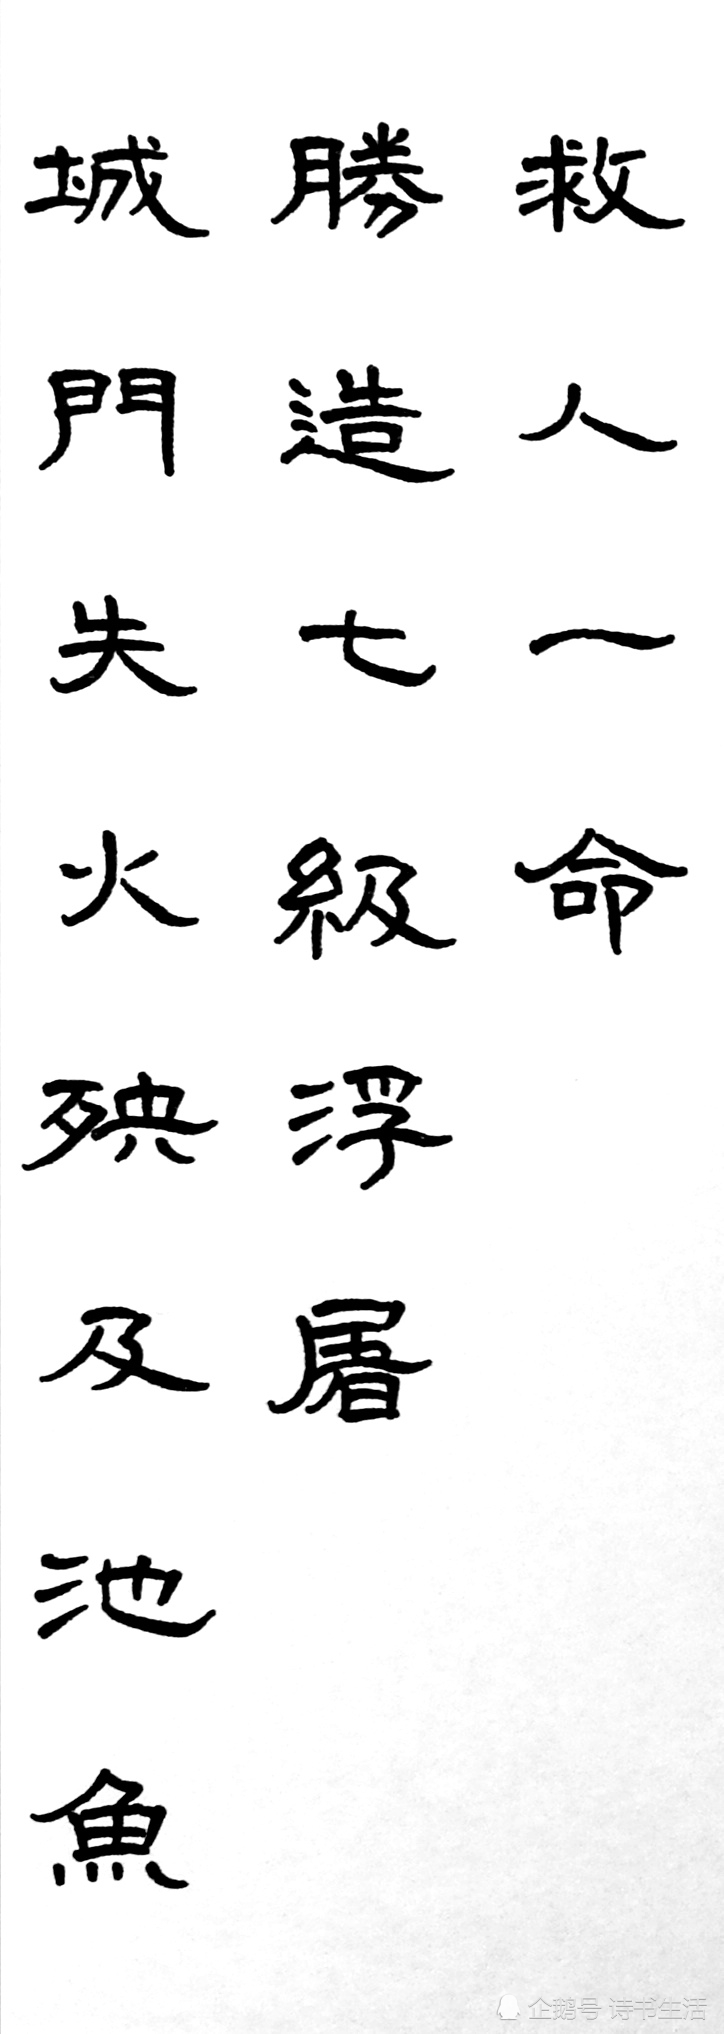 救人一命
勝造七級浮屠
城門失火殃及池魚
企鹅号 诗书生活